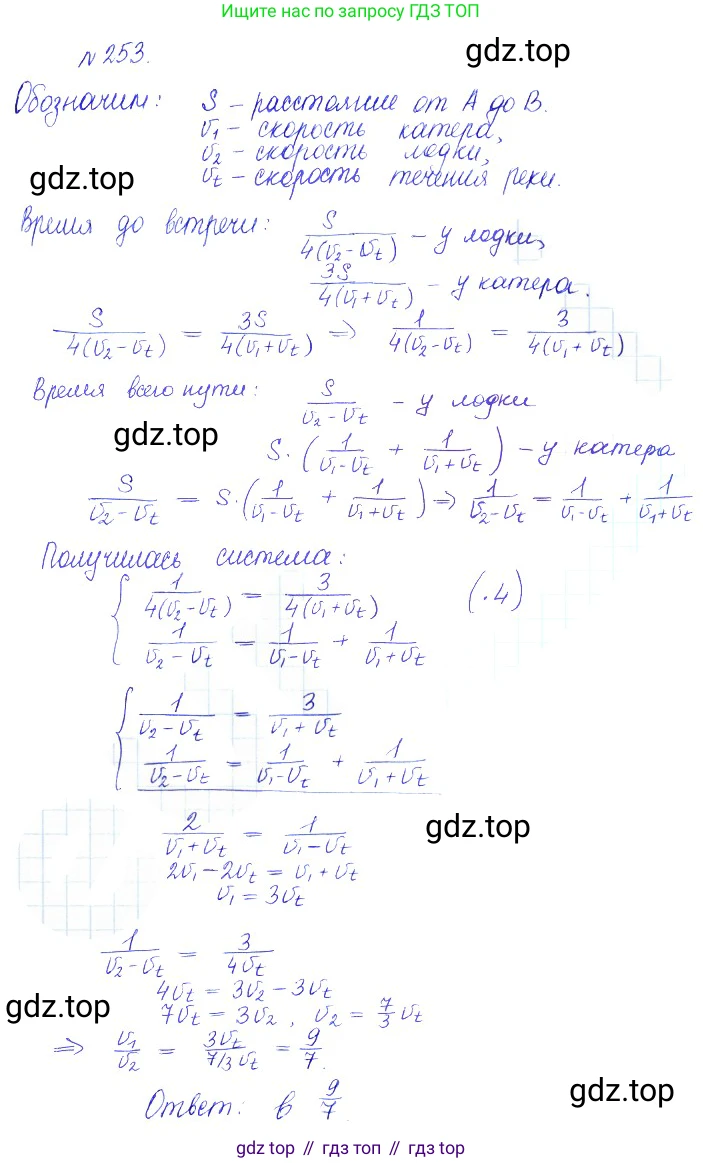 Ищите в поиске по запросу ГДЗ ТОП
№253.
gdz.top
Обозначим: S – расстояние от А до В.
v₁ – скорость катера,
v₂ – скорость лодки,
gdz.top
vt – скорость течения реки.
Время до встречи: S / 4(v₂ – vt) – у лодки,
3S / 4(v₁ + vt) – у катера.
S / 4(v₂ – vt) = 3S / 4(v₁ + vt) ⇒ 1 / 4(v₂ – vt) = 3 / 4(v₁ + vt)
Время всего пути: S / v₂ – vt – у лодки
gdz.top
S · (1 / v₁ – vt + 1 / v₁ + vt) – у катера
S / v₂ – vt = S · (1 / v₁ – vt + 1 / v₁ + vt) ⇒ 1 / v₂ – vt = 1 / v₁ – vt + 1 / v₁ + vt
Получилась система:
{ 1 / 4(v₂ – vt) = 3 / 4(v₁ + vt) (·4)
1 / v₂ – vt = 1 / v₁ – vt + 1 / v₁ + vt
{ 1 / v₂ – vt = 3 / v₁ + vt
1 / v₂ – vt = 1 / v₁ – vt + 1 / v₁ + vt
2 / v₁ + vt = 1 / v₁ – vt
gdz.top
2v₁ – 2vt = v₁ + vt
v₁ = 3vt
1 / v₂ – vt = 3 / 4vt
4vt = 3v₂ – 3vt
gdz.top
7vt = 3v₂, v₂ = 7/3 vt
⇒ v₁ / v₂ = 3vt / 7/3 vt = 9/7.
gdz.top
Ответ: в 9/7
gdz.top // гдз топ // gdz.top // гдз топ